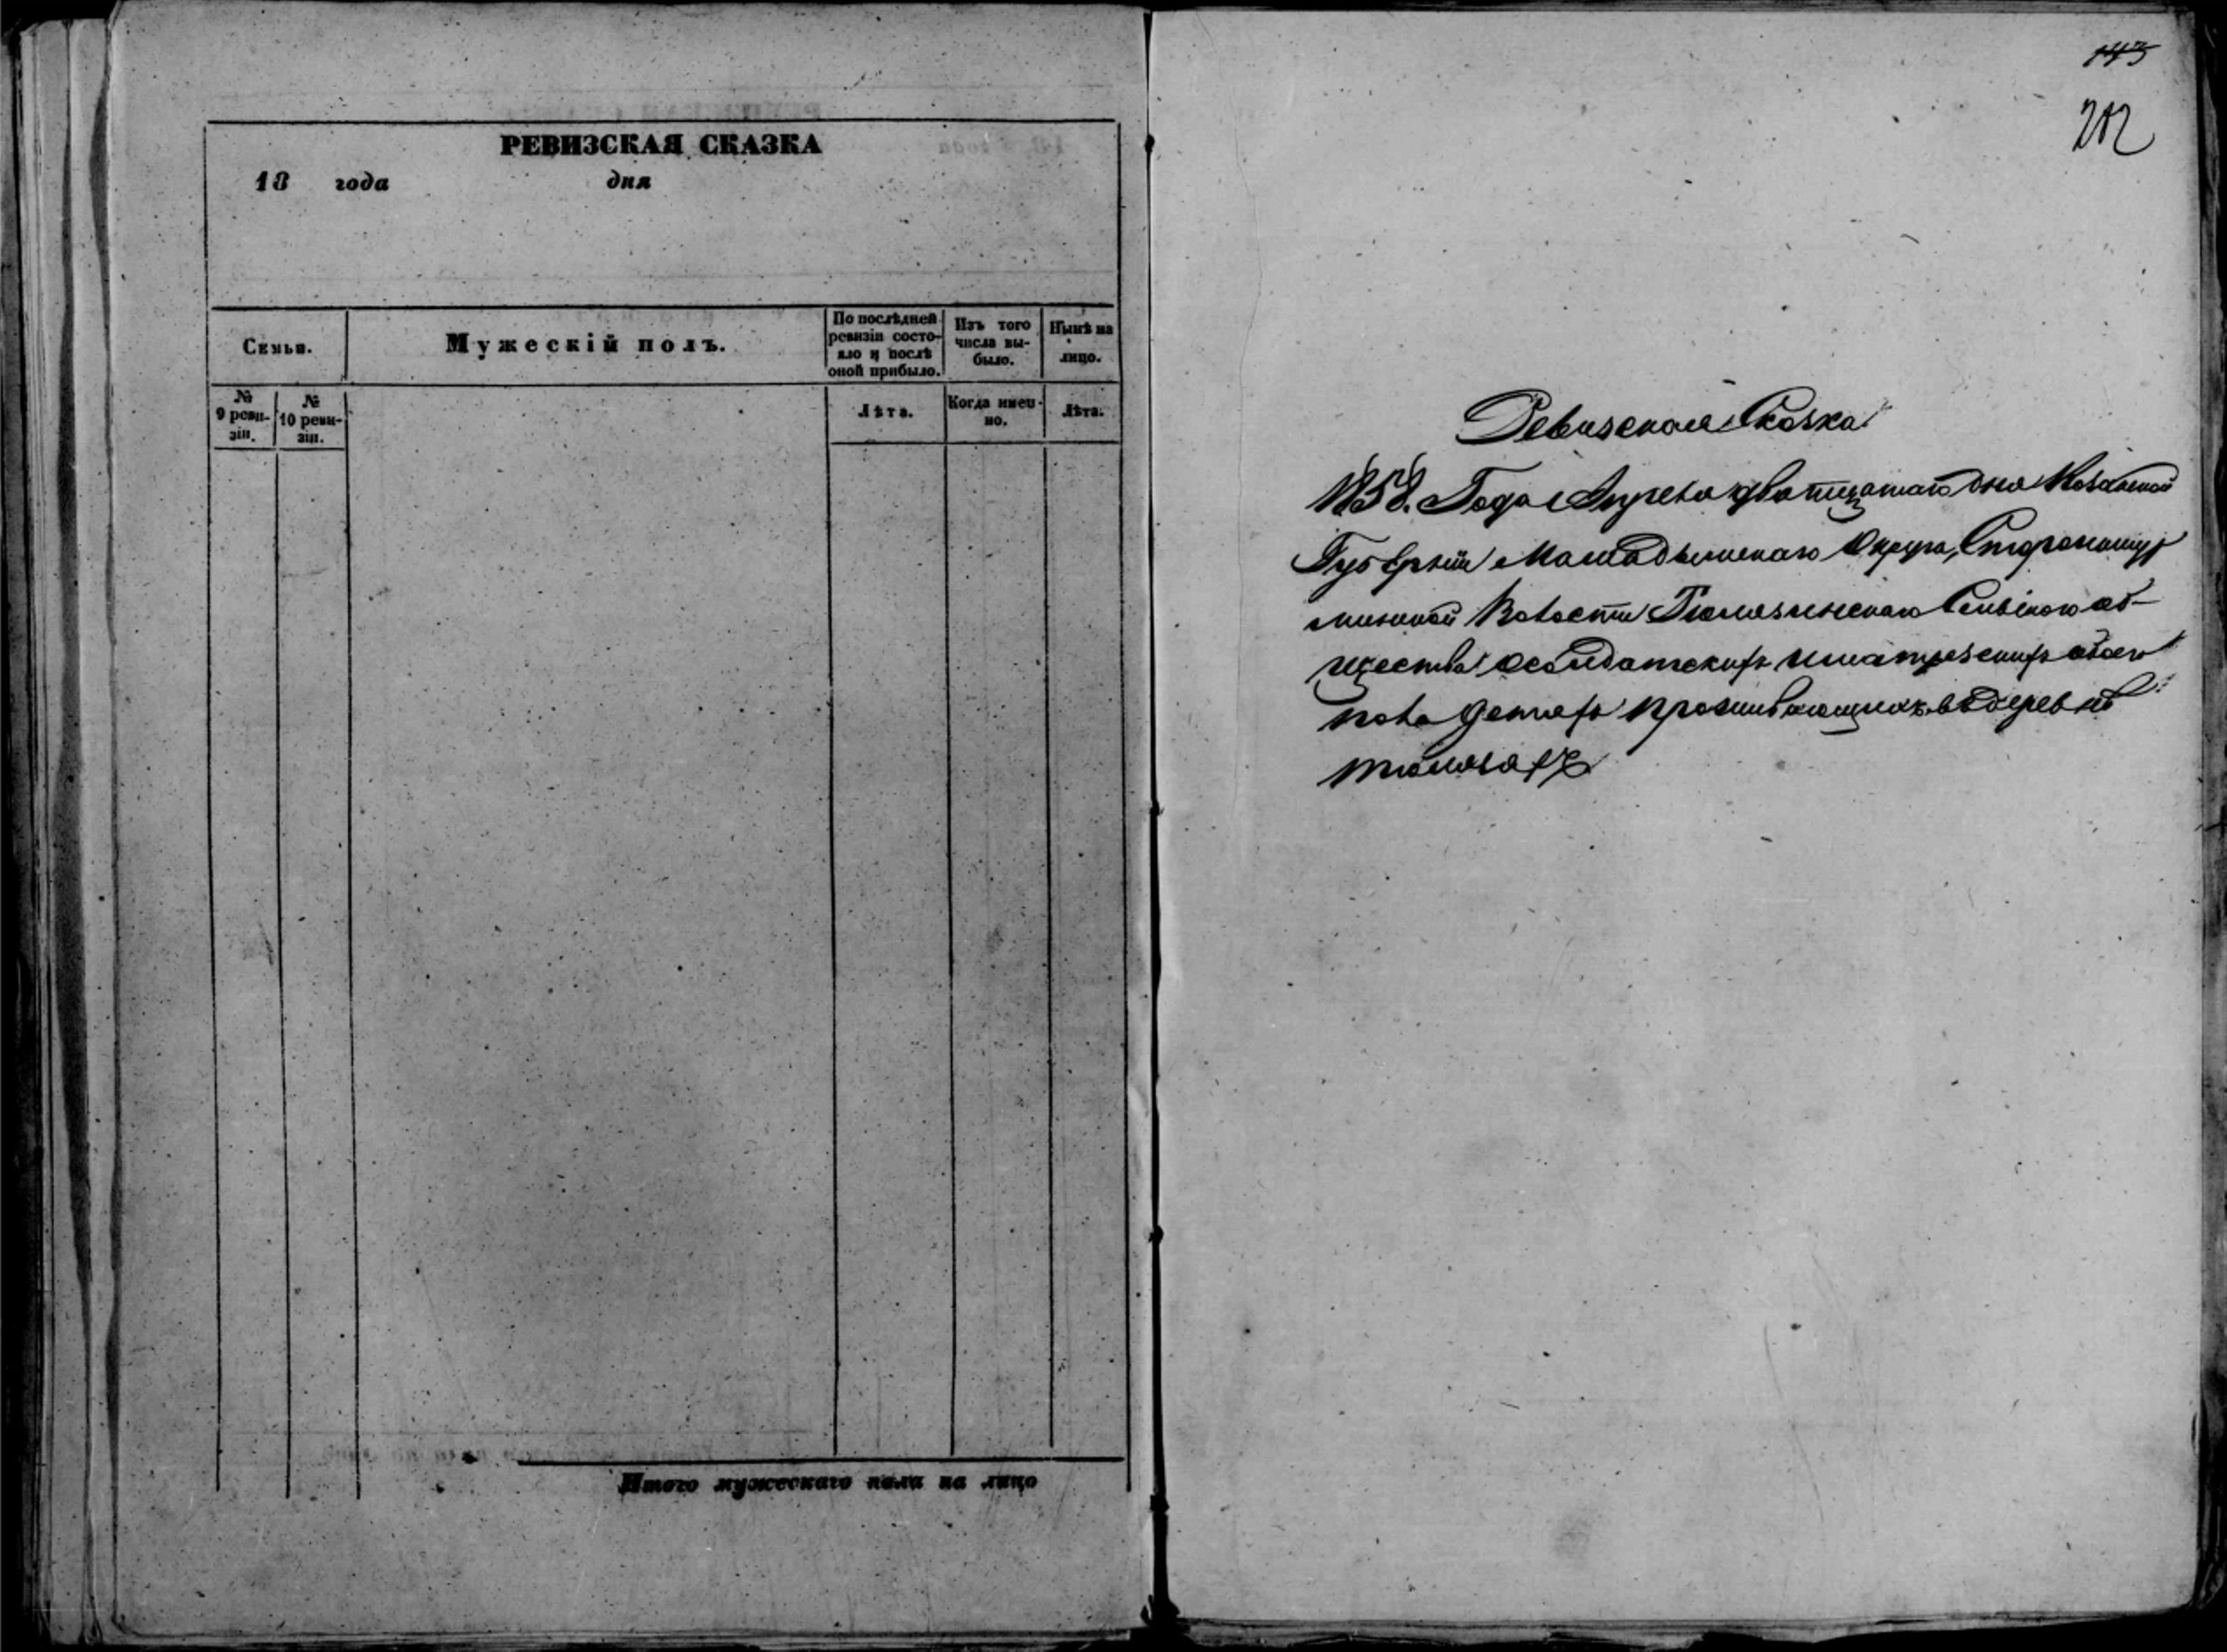 РЕВИЗСКАЯ СКАЗКА
18 года дня
Семьи.
Мужескій полъ.
По послѣдней
ревизіи состо-
яло и послѣ
оной прибыло.
Изъ того
числа вы-
было.
Нынѣ на
лицо.
№
9 реви-
зіи.
№
10 реви-
зіи.
Лѣта.
Когда имен-
но.
Лѣта.
Итого мужескаго пола на лицо
143
202
Ревизская Сказка
1858. Года Апреля дватцатаго дня Казанской
Губерніи Мамадышскаго Округа,
Волости Сельскаго об-
щества осолдатскихъ обоего
пола детяхъ проживающихъ въ деревнѣ